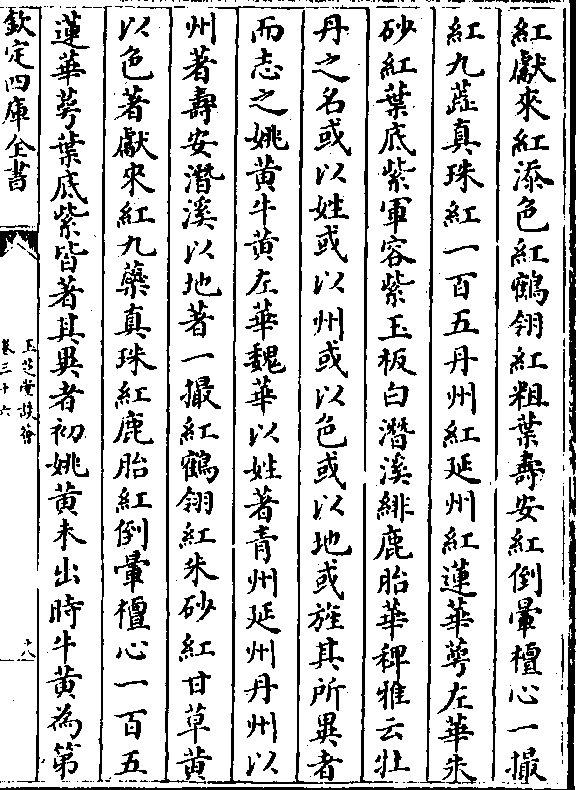 紅獻來紅添色紅鶴翎紅粗葉壽安紅倒暈檀心一撮
紅九蕋真珠紅一百五丹州紅延州紅蓮華萼左華朱
砂紅葉底紫軍容紫玉板白潛溪緋鹿胎華稗雅云牡
丹之名或以姓或以州或以色或以地或旌其所異者
而志之姚黃牛黃左華魏華以姓著青州延州丹州以
州著壽安潛溪以地著一撮紅鶴翎紅朱砂紅甘草黃
以色著獻來紅九藥真珠紅鹿胎紅倒暈檀心一百五
蓮華萼葉底紫皆著其異者初姚黃未出時牛黃為第
欽定四庫全書
玉芝堂談薈
卷三十六
十八